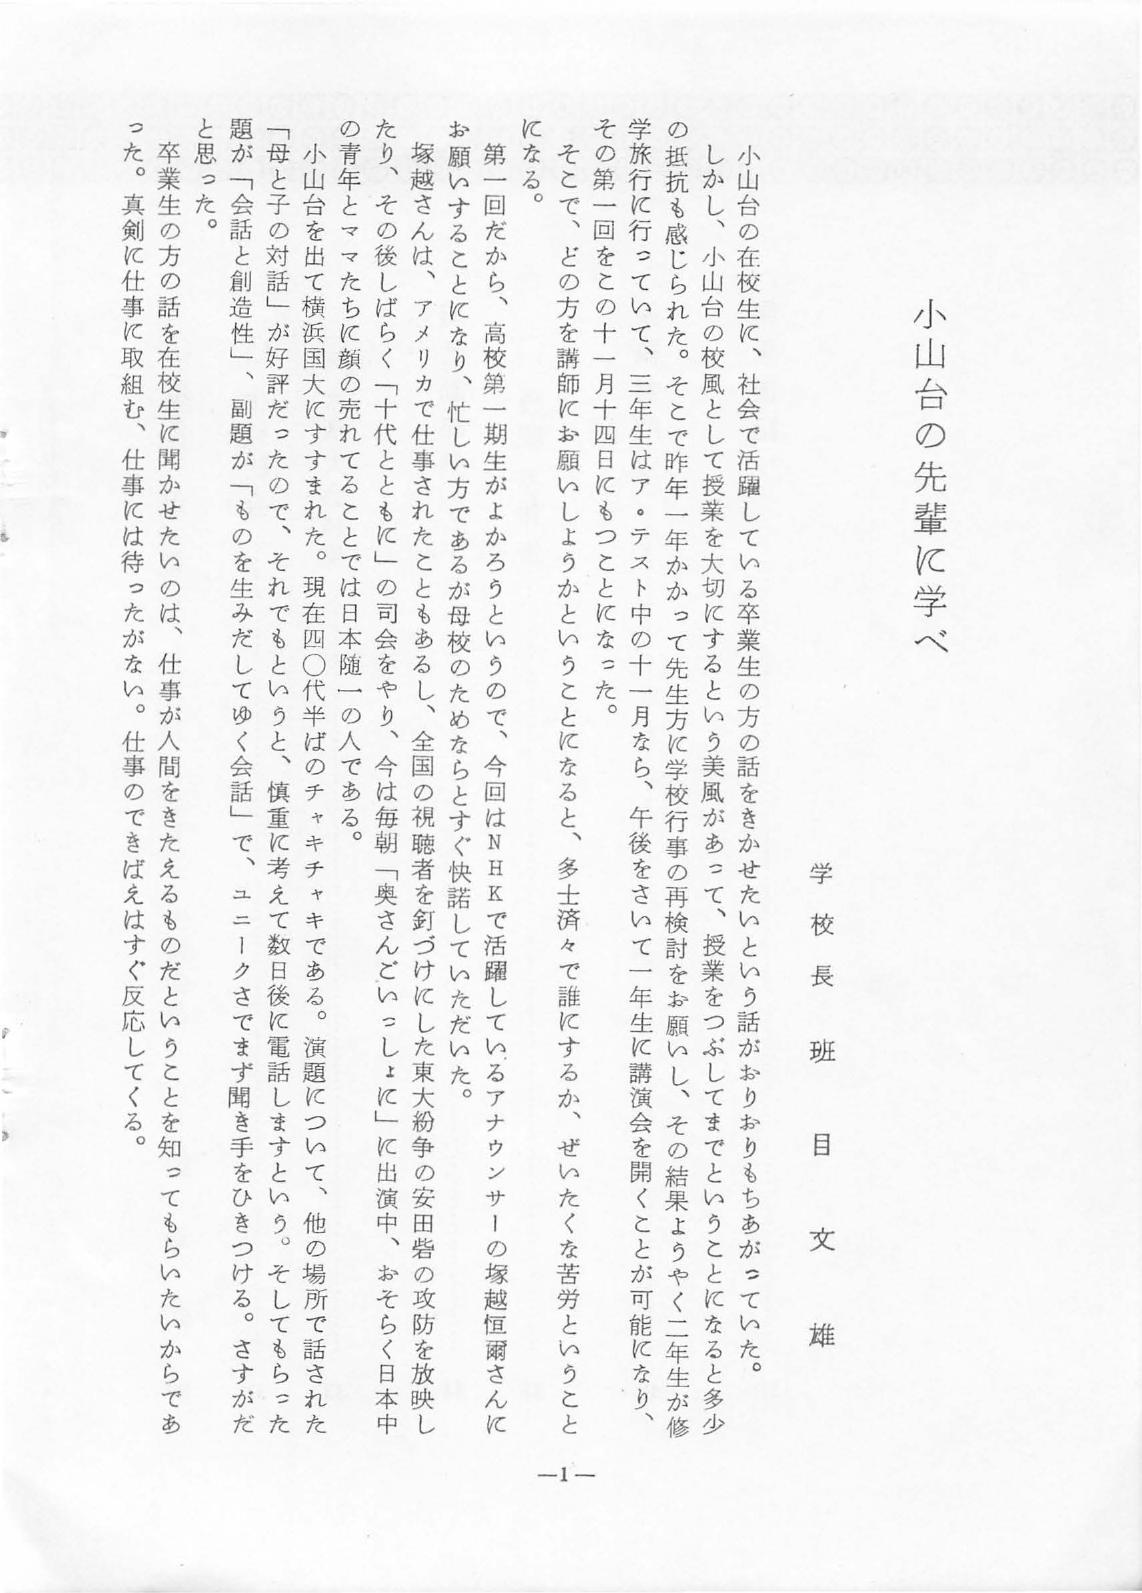 小山台の先輩に学べ
学校長 班目文雄
小山台の在校生に、社会で活躍している卒業生の方の話をきかせたいという話がおりおりもちあがっていた。
しかし、小山台の校風として授業を大切にするという美風があって、授業をつぶしてまでということになると多少
の抵抗も感じられた。そこで昨年一年かかって先生方に学校行事の再検討をお願いし、その結果ようやく二年生が修
学旅行に行っていて、三年生はア・テスト中の十一月なら、午後をさいて一年生に講演会を開くことが可能になり、
その第一回をこの十一月十四日にもつことになった。
そこで、どの方を講師にお願いしようかということになると、多士済々で誰にするか、ぜいたくな苦労ということ
になる。
第一回だから、高校第一期生がよかろうというので、今回はNHKで活躍しているアナウンサーの塚越恒爾さんに
お願いすることになり、忙しい方であるが母校のためならとすぐ快諾していただいた。
塚越さんは、アメリカで仕事されたこともあるし、全国の視聴者を釘づけにした東大紛争の安田砦の攻防を放映し
たり、その後しばらく「十代とともに」の司会をやり、今は毎朝「奥さんごいっしょに」に出演中、おそらく日本中
の青年とママたちに顔の売れてることでは日本随一の人である。
小山台を出て横浜国大にすすまれた。現在四〇代半ばのチャキチャキである。演題について、他の場所で話された
「母と子の対話」が好評だったので、それでもというと、慎重に考えて数日後に電話しますという。そしてもらった
題が「会話と創造性」、副題が「ものを生みだしてゆく会話」で、ユニークさでまず聞き手をひきつける。さすがだ
と思った。
卒業生の方の話を在校生に聞かせたいのは、仕事が人間をきたえるものだということを知ってもらいたいからであ
った。真剣に仕事に取組む、仕事には待ったがない。仕事のできばえはすぐ反応してくる。
—1—